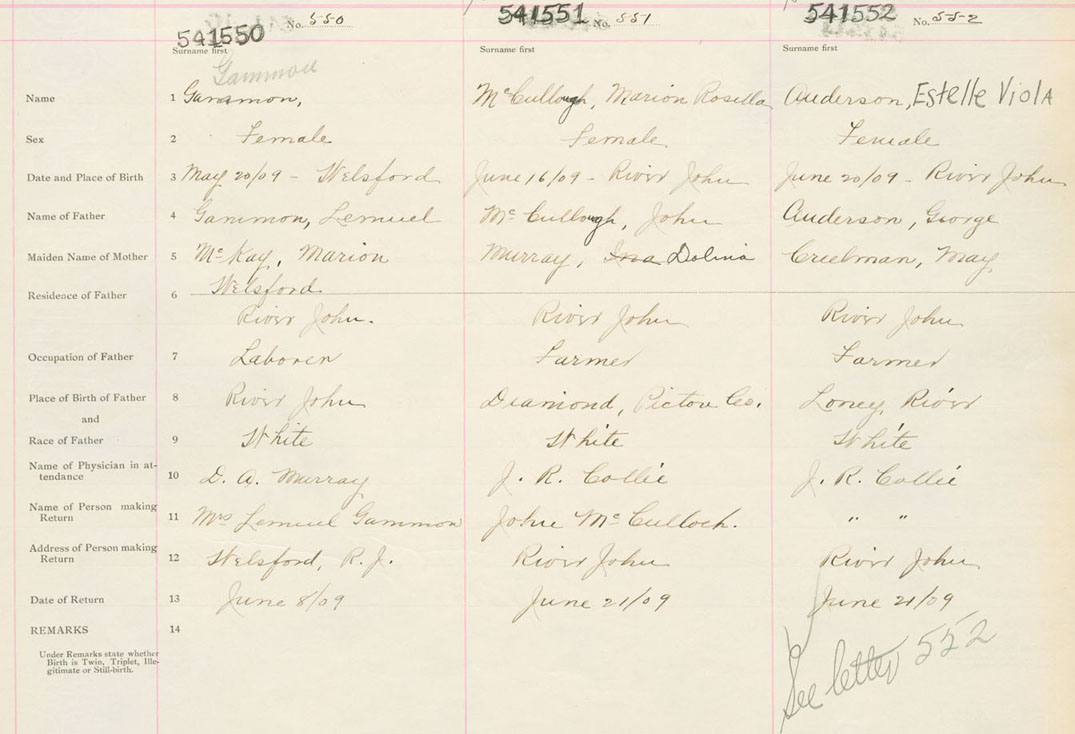 541550 No. 550 541551 No. 551 541552 No. 552
Surname first Surname first Surname first
Gammon
Name 1 Gammon, McCullough, Marion Rosella Anderson, Estelle Viola
Sex 2 Female Female Female
Date and Place of Birth 3 May 20/09 - Welsford June 16/09 - River John June 20/09 - River John
Name of Father 4 Gammon, Lemuel McCullough, John Anderson, George
Maiden Name of Mother 5 McKay, Marion Murray, Dolina Creelman, May
Welsford
Residence of Father 6 River John. River John River John
Occupation of Father 7 Laborer Farmer Farmer
Place of Birth of Father 8 River John Diamond, Pictou Co. Loney River
and
Race of Father 9 White White White
Name of Physician in at-
tendance 10 D. A. Murray J. R. Collie J. R. Collie
Name of Person making
Return 11 Mrs Lemuel Gammon John McCulloch. " "
Address of Person making
Return 12 Welsford, R. J. River John River John
Date of Return 13 June 8/09 June 21/09 June 21/09
REMARKS 14
See letter 552
Under Remarks state whether
Birth is Twin, Triplet, Ille-
gitimate or Still-birth.